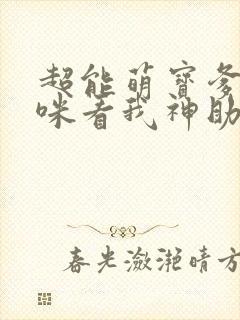 超能萌寶爹
咪看我神助
春光潋滟晴方